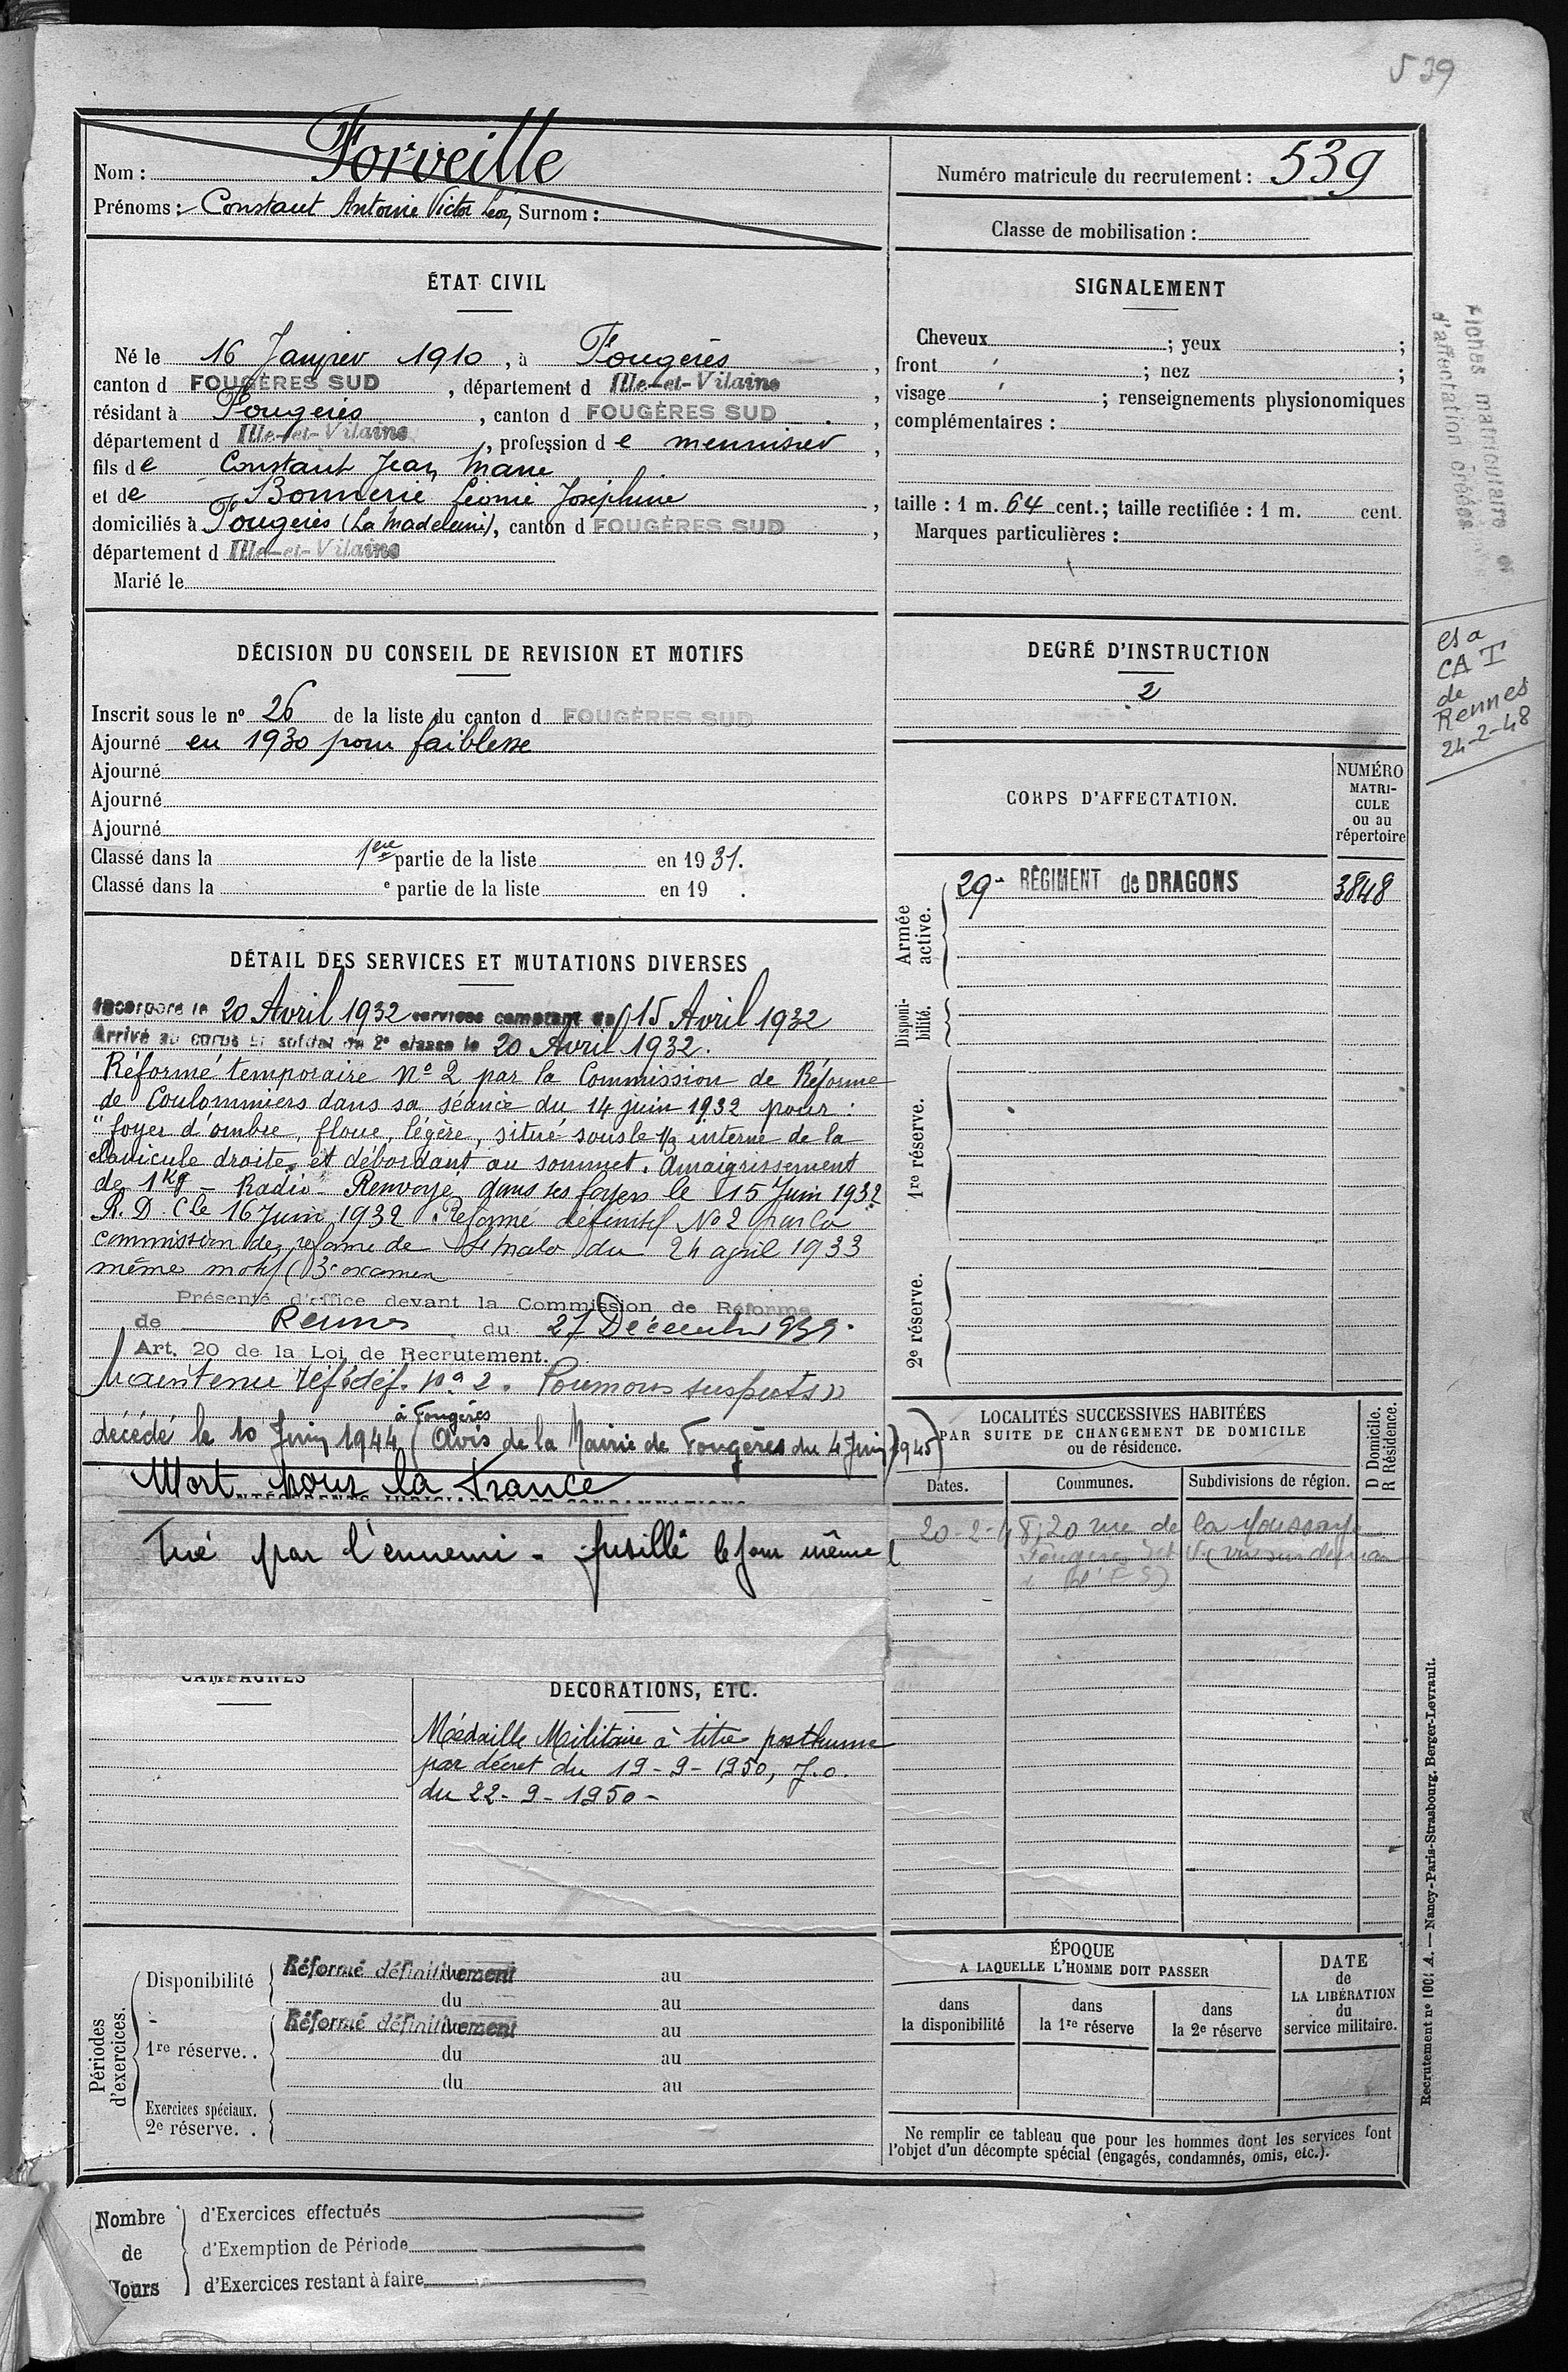 539
Nom : Forveille
Prénoms : Constant Antoine Victor Léon Surnom :
Numéro matricule du recrutement : 539
Classe de mobilisation :
ÉTAT CIVIL
Né le 16 Janvier 1910, à Fougères,
canton d FOUGÈRES SUD, département d Ille-et-Vilaine,
résidant à Fougères, canton d FOUGÈRES SUD,
département d Ille-et-Vilaine, profession d e menuisier,
fils de Constant Jean Marie
et de Bonnerie Léonie Joséphine,
domiciliés à Fougères (La Madeleine), canton d FOUGÈRES SUD,
département d Ille-et-Vilaine
Marié le
SIGNALEMENT
Cheveux ; yeux ;
front ; nez ;
visage ; renseignements physionomiques
complémentaires :
taille : 1 m. 64 cent.; taille rectifiée : 1 m. cent.
Marques particulières :
Fiches matriculaire et
d'affectation créées
DÉCISION DU CONSEIL DE REVISION ET MOTIFS
Inscrit sous le nº 26 de la liste du canton d FOUGÈRES SUD
Ajourné en 1930 pour faiblesse
Ajourné
Ajourné
Ajourné
Classé dans la 1ère partie de la liste en 1931.
Classé dans la e partie de la liste en 19 .
DEGRÉ D'INSTRUCTION
2
CA T
de
Rennes
24-2-48
CORPS D'AFFECTATION.
NUMÉRO
MATRI-
CULE
ou au
répertoire
Armée
active.
29e RÉGIMENT de DRAGONS 3848
Disponi-
bilité.
1re réserve.
2e réserve.
DÉTAIL DES SERVICES ET MUTATIONS DIVERSES
Incorporé le 20 Avril 1932 services comptant du 15 Avril 1932
Arrivé au corps et soldat de 2e classe le 20 Avril 1932.
Réformé temporaire Nº 2 par la Commission de Réforme
de Coulommiers dans sa séance du 14 juin 1932 pour :
"foyer d'ombre, floue, légère, situé sous le 1/3 interne de la
clavicule droite, et débordant au sommet. Amaigrissement
de 1kg - Radio" Renvoyé dans ses foyers le 15 Juin 1932
R. D. C le 16 Juin 1932. Réformé définitif No 2 par la
commission de réforme de St Malo du 24 avril 1933
même motif (3e examen
Présenté d'office devant la Commission de Réforme
de Rennes du 27 Décembre 1939.
Art. 20 de la Loi de Recrutement.
Maintenu réf. déf. nº 2. Poumons suspects »
à Fougères
décédé le 10 Juin 1944 (Avis de la Mairie de Fougères du 4 Juin 1945)
Mort pour la France
Tué par l'ennemi - fusillé le jour même
LOCALITÉS SUCCESSIVES HABITÉES
PAR SUITE DE CHANGEMENT DE DOMICILE
ou de résidence.
D Domicile.
R Résidence.
Dates.
Communes.
Subdivisions de région.
20-2-48, 20 rue de la
CAMPAGNES
DECORATIONS, ETC.
Médaille Militaire à titre posthume
par décret du 19-9-1950, J.O.
du 22-9-1950-
Périodes
d'exercices.
Disponibilité
Réformé définitivement au
du au
1re réserve. .
Réformé définitivement au
du au
du au
Exercices spéciaux.
2e réserve. .
ÉPOQUE
A LAQUELLE L'HOMME DOIT PASSER
dans
la disponibilité
dans
la 1re réserve
dans
la 2e réserve
DATE
de
LA LIBÉRATION
du
service militaire.
Ne remplir ce tableau que pour les hommes dont les services font
l'objet d'un décompte spécial (engagés, condamnés, omis, etc.).
Nombre
de
Jours
d'Exercices effectués
d'Exemption de Période
d'Exercices restant à faire
A. — Nancy-Paris-Strasbourg, Berger-Levrault.